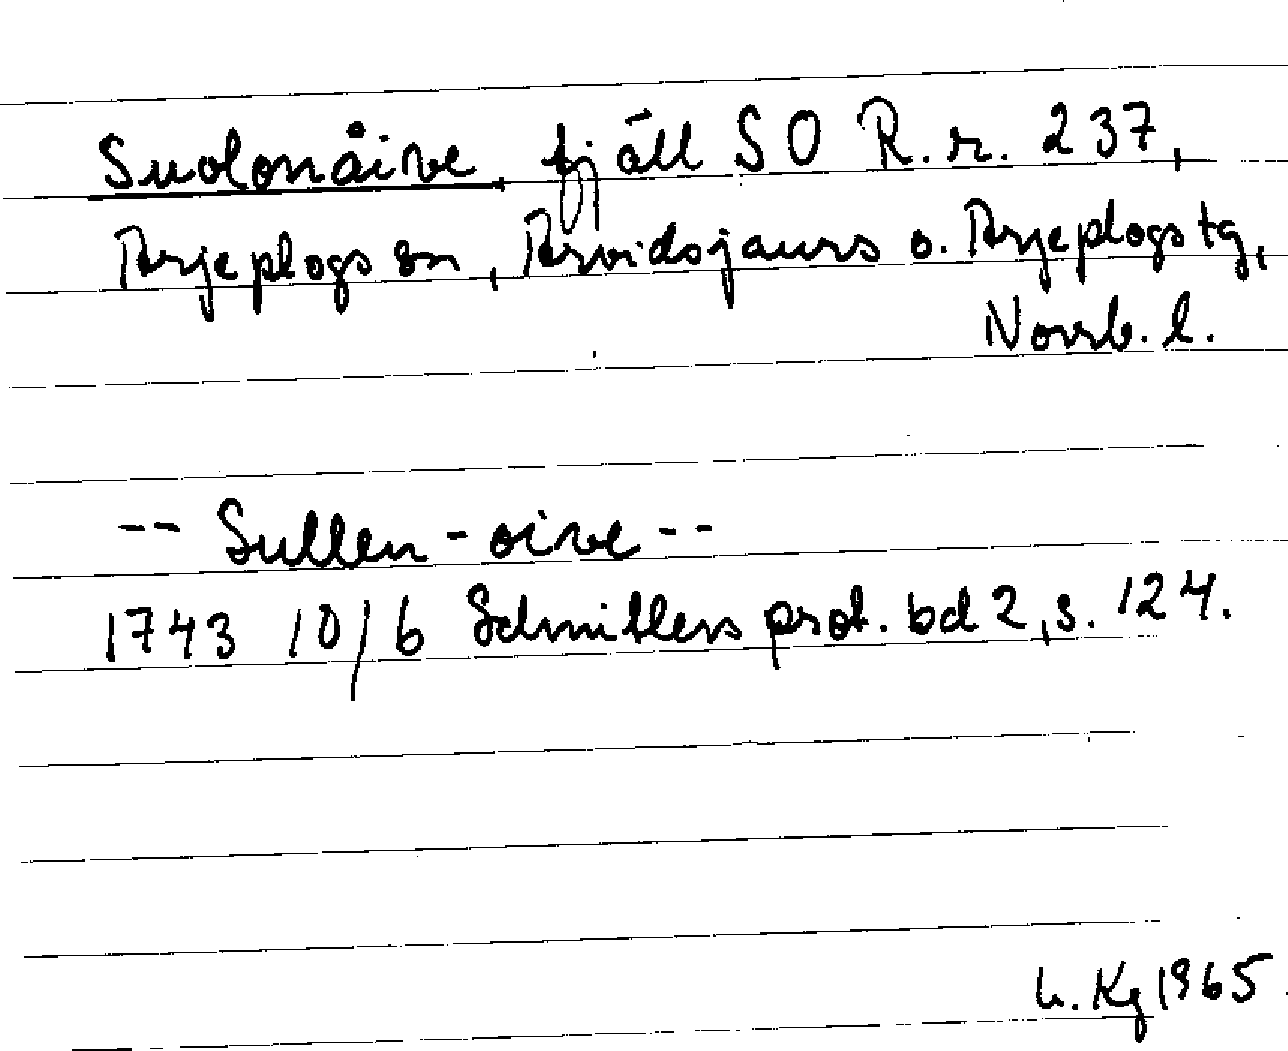 Suolonåive, fjäll SO R.r. 237,
Arjeplogs sn, Arvidsjaurs o. Arjeplogs tg,
Norrb. l.
-- Sullen-oive --
1743 10/6 Schnitlers prot. bd 2, s. 124.
Kg 1965